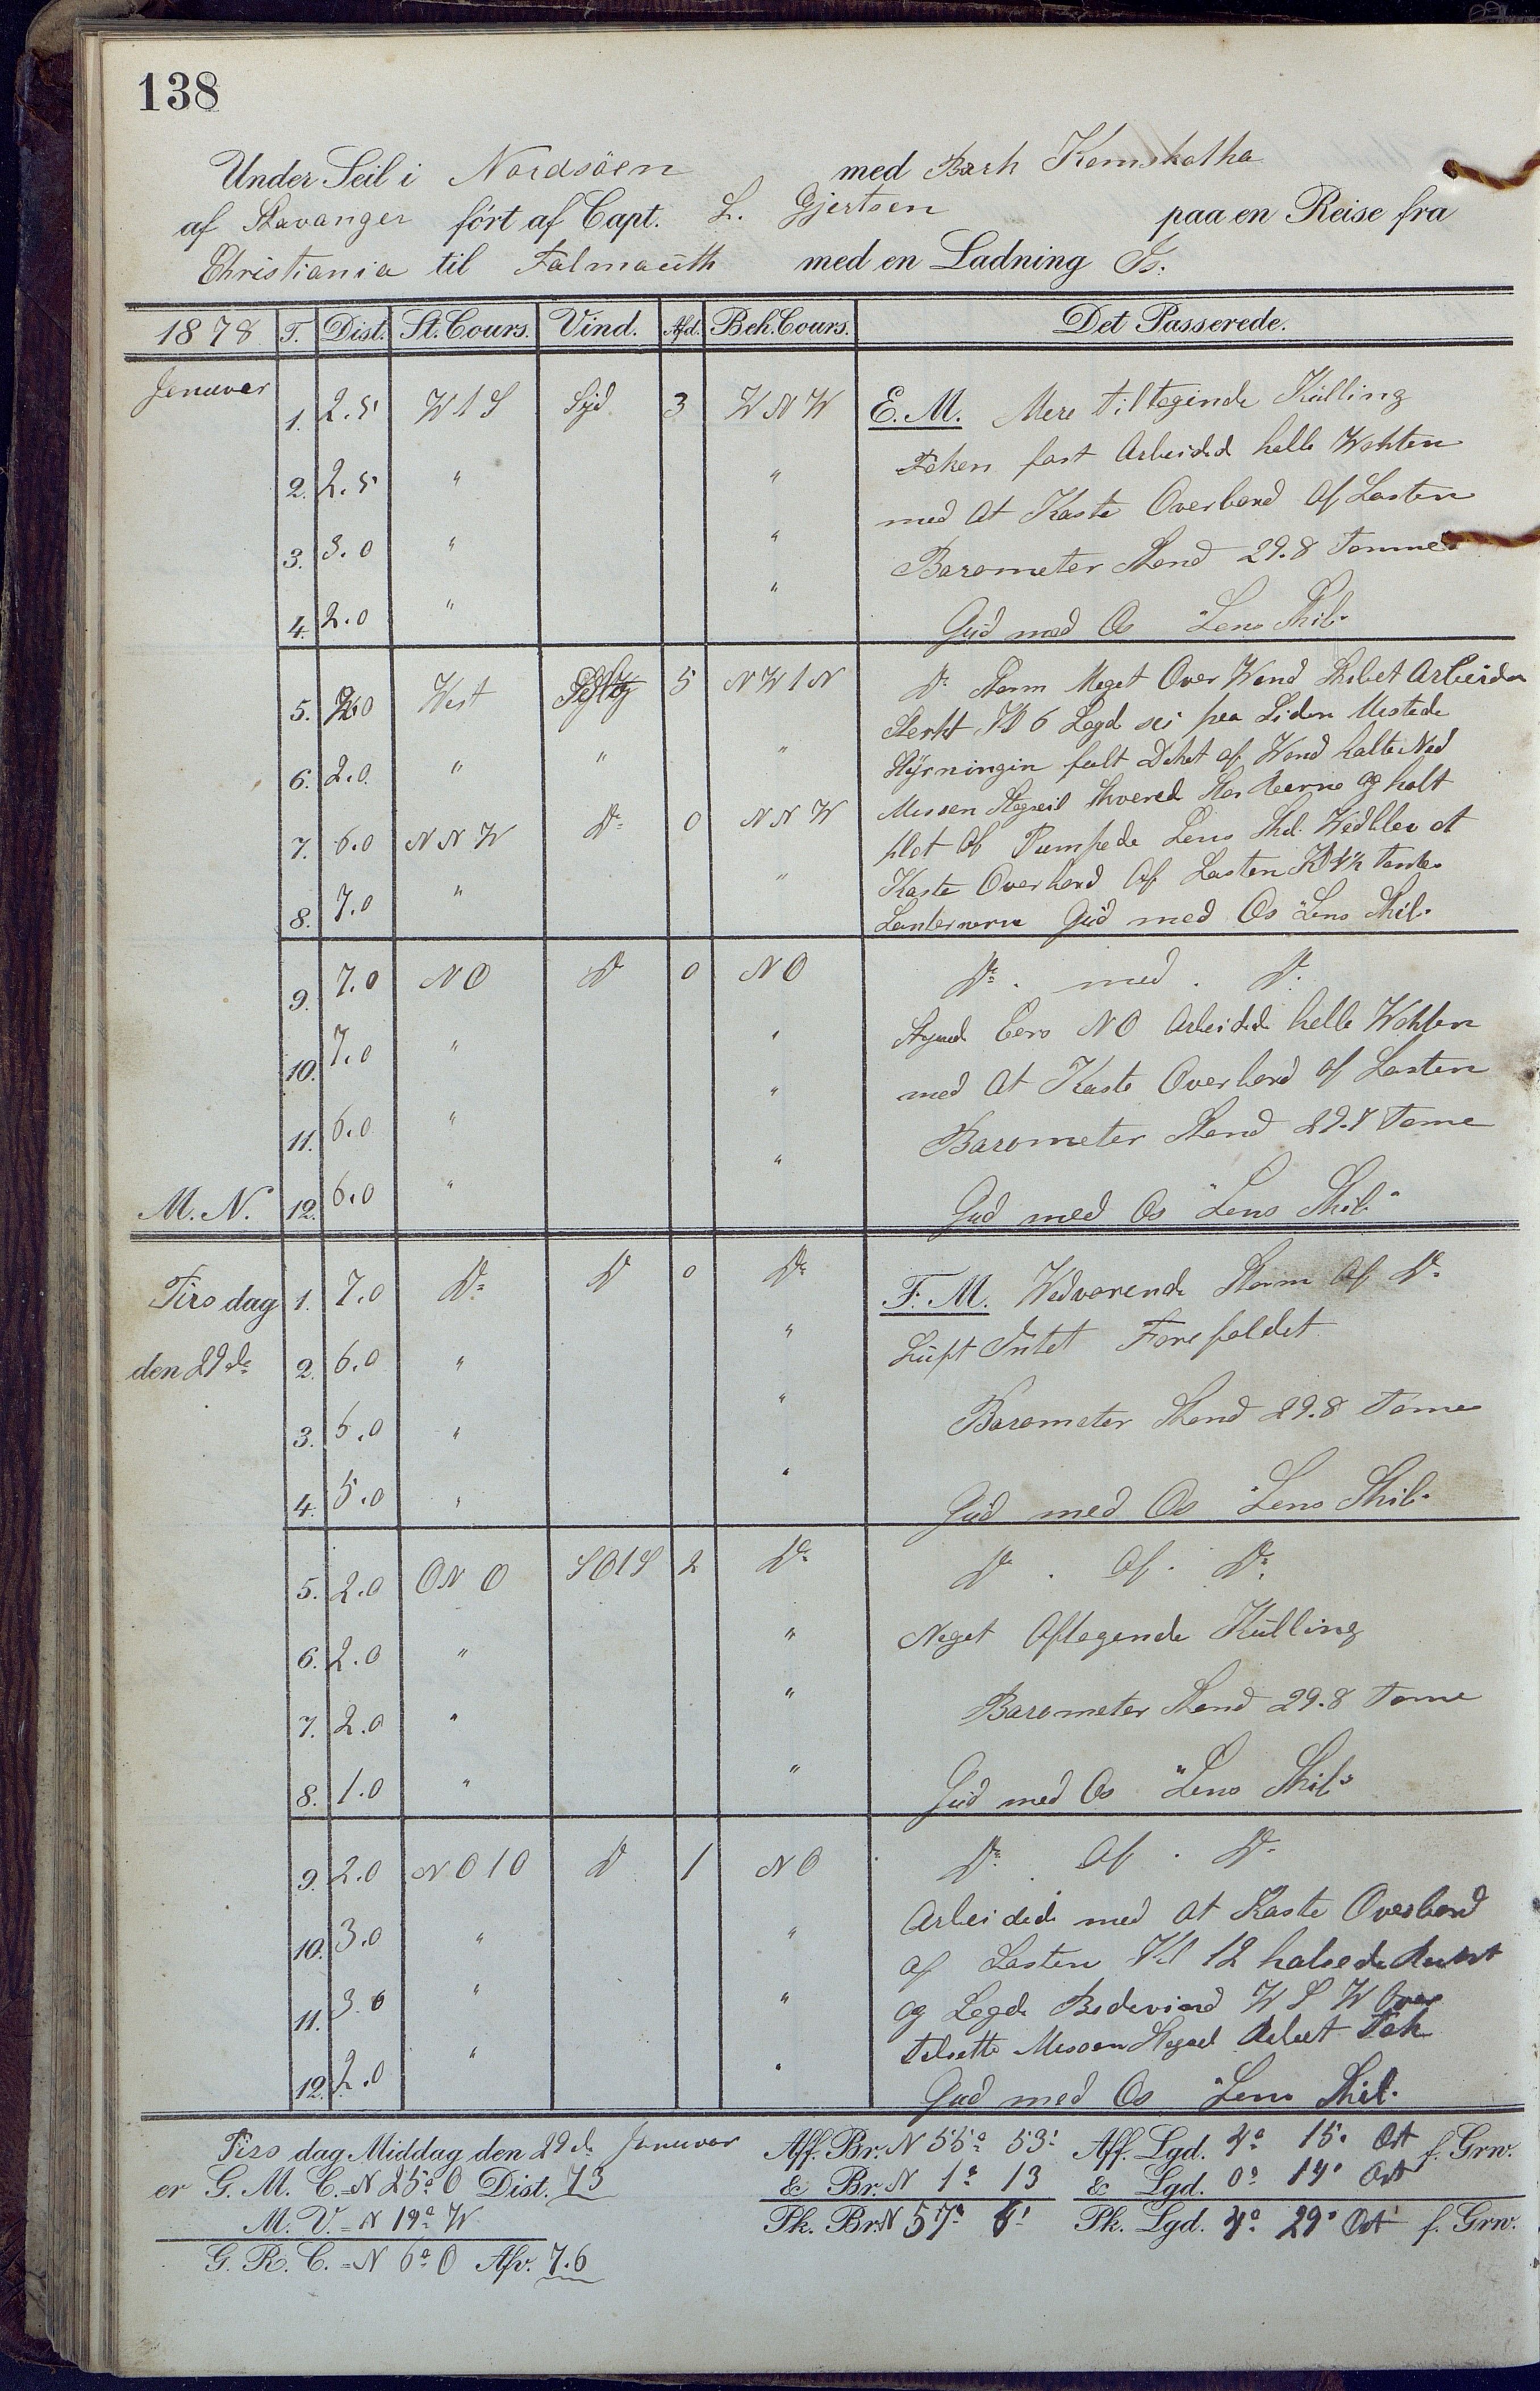 138
Under Seil i Nordsöen med Bark Kamskatka
af Stavanger fört af Capt. L. Gjertsen paa en Reise fra
Christiania til Falmouth med en Ladning Is.
1878 T. Dist. St. Cours. Vind. Afd. Beh. Cours. Det Passerede.
Januar
1. 2.5 W 1 S Syd 3 W N W E. M. Mere tiltagende Kulling
2. 2.5 " " Taken fast Arbeided helle Wakten
3. 3.0 " " med at Kaste Overbord af Lasten
Barometer Stand 29.8 Tommer
4. 2.0 " " Gud med Os Lens Skib.
5. 2.0 West 5 N W 1 N Do Storm Meget Over Wand Skibet Arbeider
Sterkt Kl 6 Legd sei paa Siden Mistede
6. 2.0 " " " Styrningin falt Deket af Wand halte Ned
Messen Skvered og holt
7. 6.0 N N W Do 0 N N W plat Af Pumpede Lens Skib. Wedblev at
8. 7.0 " " Kaste Overbord Af Lasten Kl 4½ tente
Lanternerne Gud med Os Lens Skib.
9. 7.0 N O Do 0 N O Do . med . Do.
10. 7.0 " " Styred NO Arbeidede helle Wakten
11. 6.0 " " med at Kaste Overbord af Lasten
Barometer Stand 29.8 Tome
M. N. 12. 6.0 " " Gud med Os "Lens Skib"
Tirsdag 1. 7.0 Do Do 0 Do F. M. Wedvarende Storm af Do
den 29de 2. 6.0 " " Luft Intet Forefaldet
3. 6.0 " " Barometer Stand 29.8 Tome
4. 5.0 " " Gud med Os Lens Skib.
5. 2.0 O N O S O 1 S 2 Do Do . Af . Do.
6. 2.0 " " Noget Aftagende Kulling
7. 2.0 " " Barometer Stand 29.8 Tome
8. 1.0 " " Gud med Os "Lens Skib"
9. 2.0 N O 1 O Do 1 N O Do . Af . Do
10. 3.0 " " Arbeidede med at Kaste Overbord
af Lasten Kl 12 halsede Rundt
11. 3.0 " " og Legde Bidevind W S W Over
Tilsatte Messen
12. 2.0 " " Gud med Os Lens Skib.
Tirsdag Middag den 29de Januar Aff. Br. N 55° 53' Aff. Lgd. 4° 15' Ost f. Grw.
er G. M. C. = N 25° O Dist. 73 & Br. N 1° 13 & Lgd. 0° 14' Ost
M. V. = N 19° W Pk. Br. N 57° 6' Pk. Lgd. 4° 29' Ost f. Grw.
G. R. C. = N 6° O Afv. 7.6